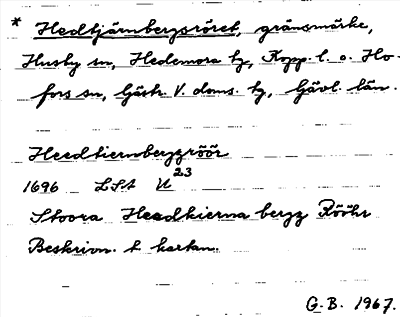 * Hedtjärnbergsröret, gränsmärke,
Husby sn, Hedemora tg, Kopp. l. o. Ho-
fors sn, Gästr. V. doms. tg, Gävl. län.
Heedtiernbergzröör
1696 LSA U 23
Stoora Heedkierna bergz Rööhr
Beskrivn. t kartan.
G. B. 1967.